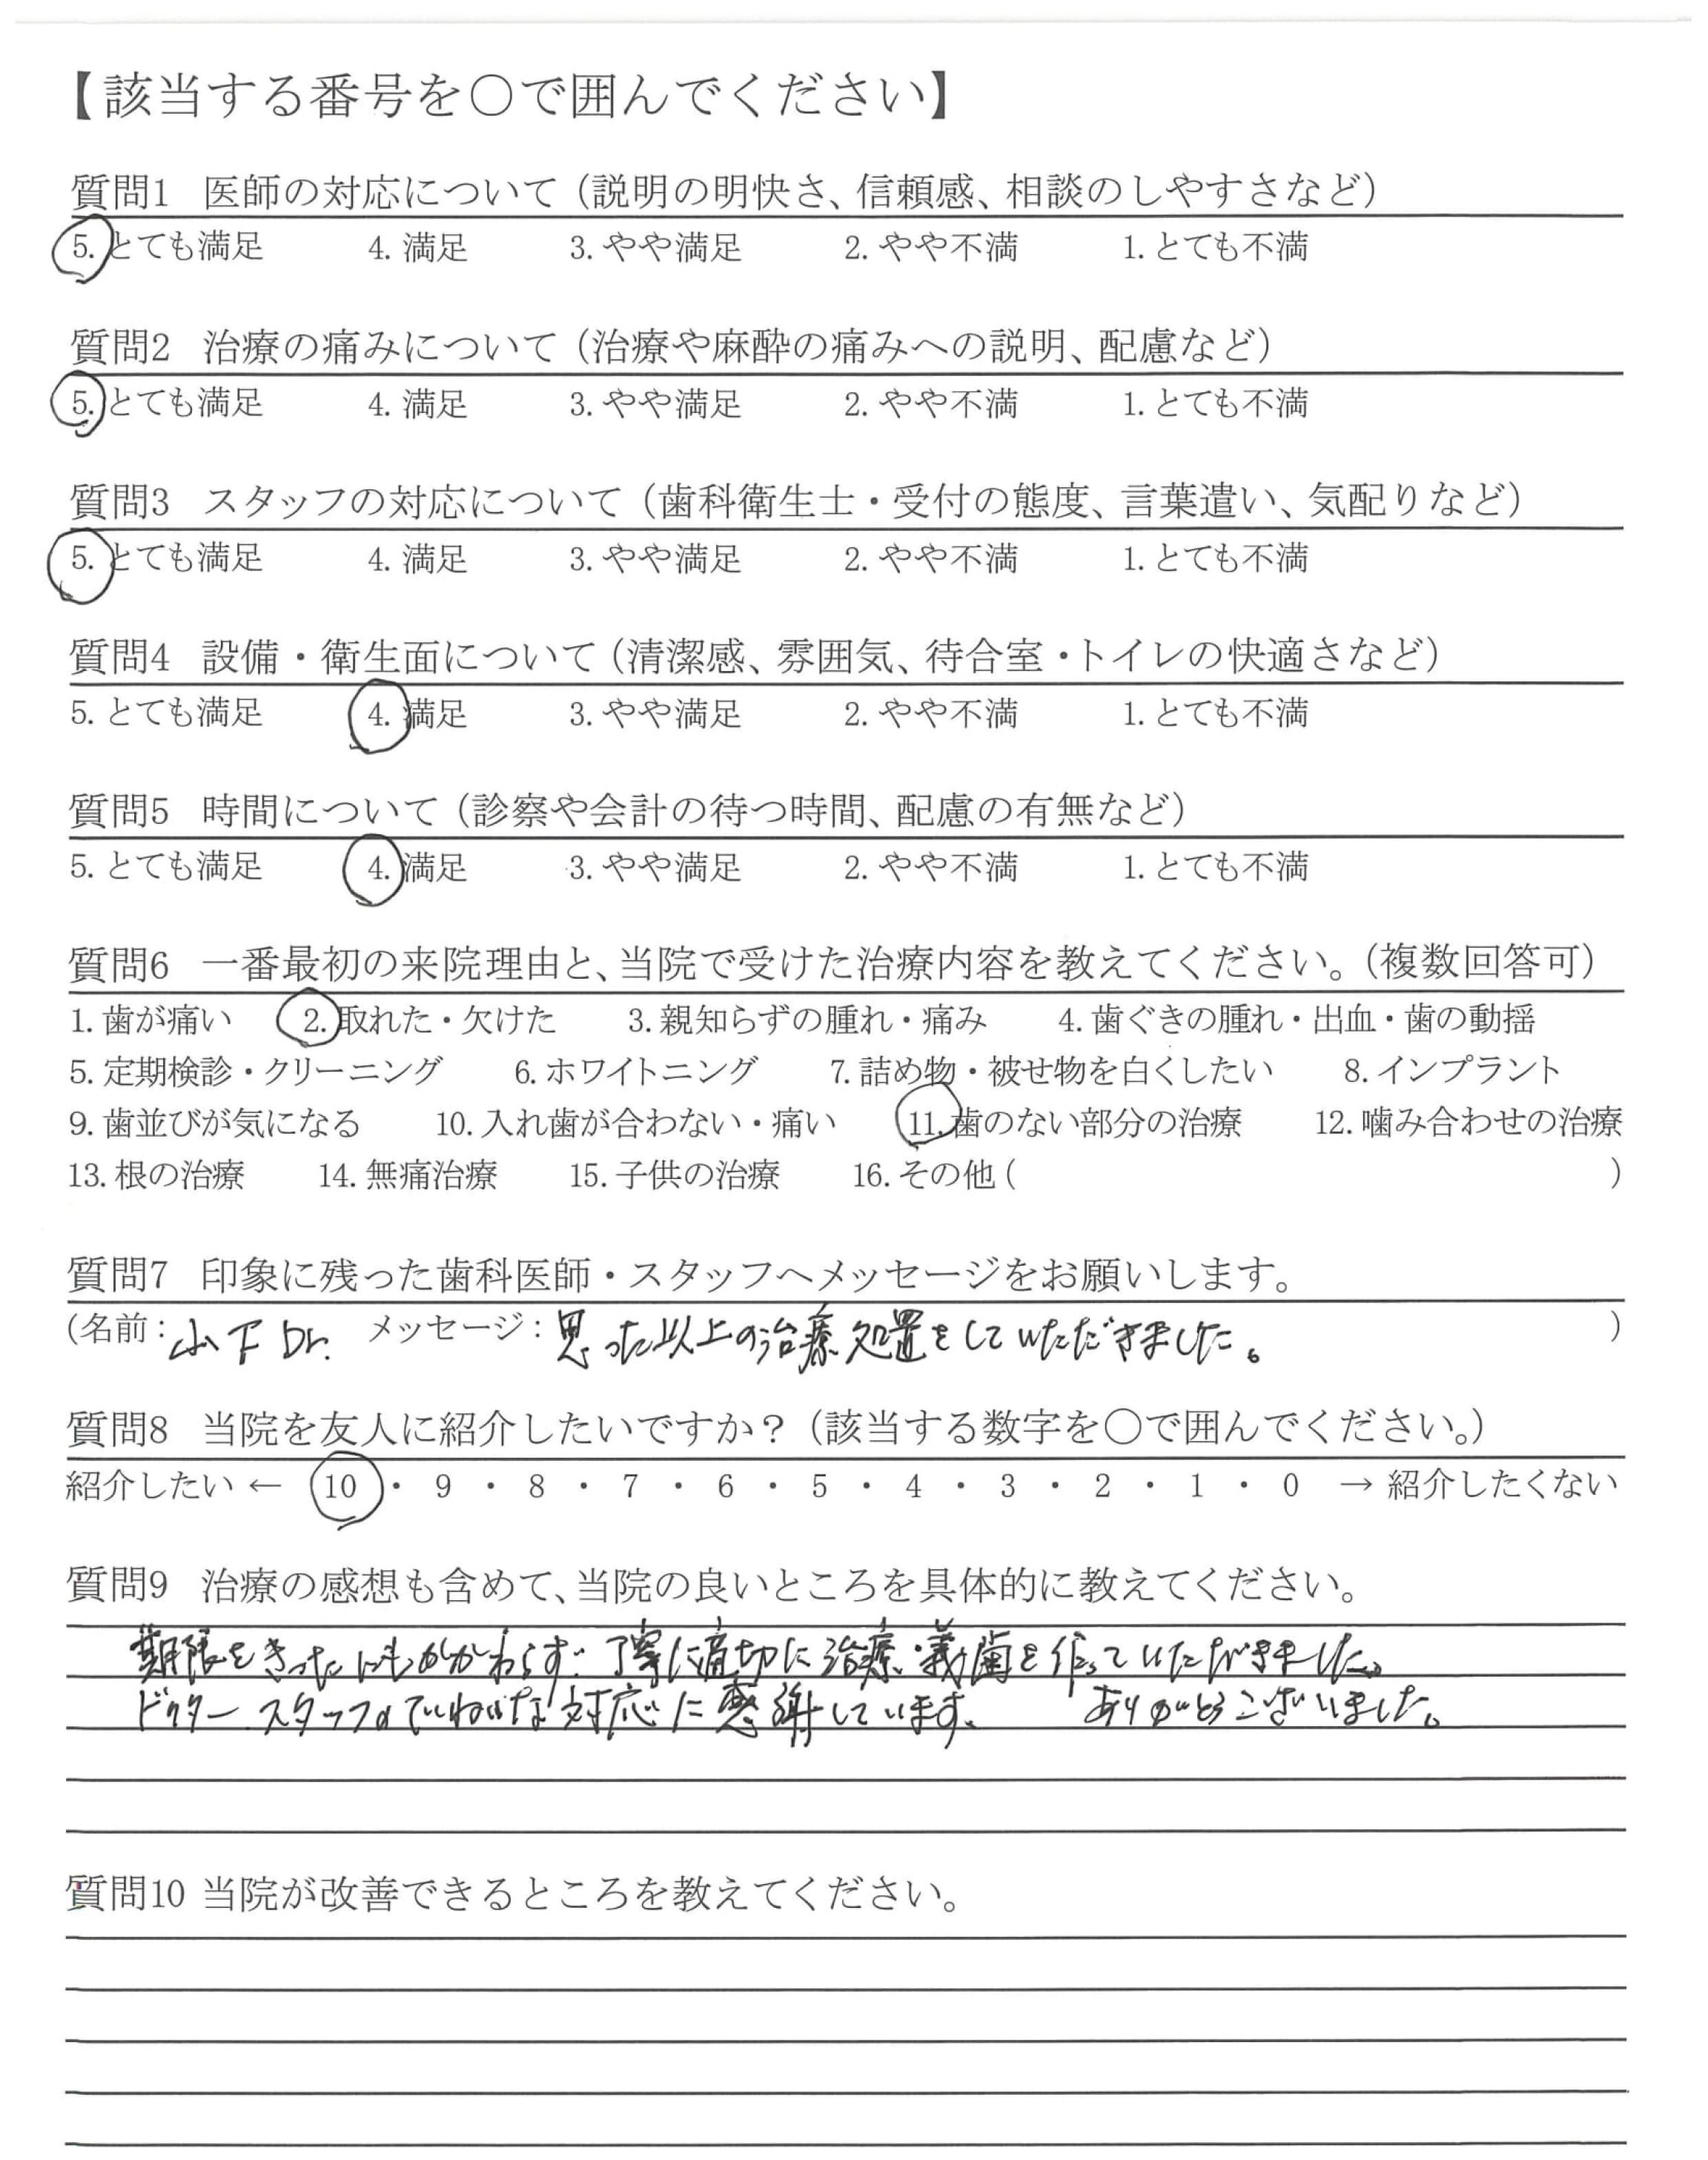 【該当する番号を○で囲んでください】
質問1 医師の対応について（説明の明快さ、信頼感、相談のしやすさなど）
5. とても満足 4. 満足 3. やや満足 2. やや不満 1. とても不満
質問2 治療の痛みについて（治療や麻酔の痛みへの説明、配慮など）
5. とても満足 4. 満足 3. やや満足 2. やや不満 1. とても不満
質問3 スタッフの対応について（歯科衛生士・受付の態度、言葉遣い、気配りなど）
5. とても満足 4. 満足 3. やや満足 2. やや不満 1. とても不満
質問4 設備・衛生面について（清潔感、雰囲気、待合室・トイレの快適さなど）
5. とても満足 4. 満足 3. やや満足 2. やや不満 1. とても不満
質問5 時間について（診察や会計の待つ時間、配慮の有無など）
5. とても満足 4. 満足 3. やや満足 2. やや不満 1. とても不満
質問6 一番最初の来院理由と、当院で受けた治療内容を教えてください。（複数回答可）
1. 歯が痛い 2. 取れた・欠けた 3. 親知らずの腫れ・痛み 4. 歯ぐきの腫れ・出血・歯の動揺
5. 定期検診・クリーニング 6. ホワイトニング 7. 詰め物・被せ物を白くしたい 8. インプラント
9. 歯並びが気になる 10. 入れ歯が合わない・痛い 11. 歯のない部分の治療 12. 噛み合わせの治療
13. 根の治療 14. 無痛治療 15. 子供の治療 16. その他（ ）
質問7 印象に残った歯科医師・スタッフへメッセージをお願いします。
（名前：山下Dr. メッセージ：思った以上の治療処置をしていただきました。）
質問8 当院を友人に紹介したいですか？（該当する数字を○で囲んでください。）
紹介したい ← 10 ・ 9 ・ 8 ・ 7 ・ 6 ・ 5 ・ 4 ・ 3 ・ 2 ・ 1 ・ 0 → 紹介したくない
質問9 治療の感想も含めて、当院の良いところを具体的に教えてください。
期限をきったにもかかわらず、丁寧に適切に治療・義歯を作っていただきました。
ドクター、スタッフのていねいな対応に感謝しています。 ありがとうございました。
質問10 当院が改善できるところを教えてください。